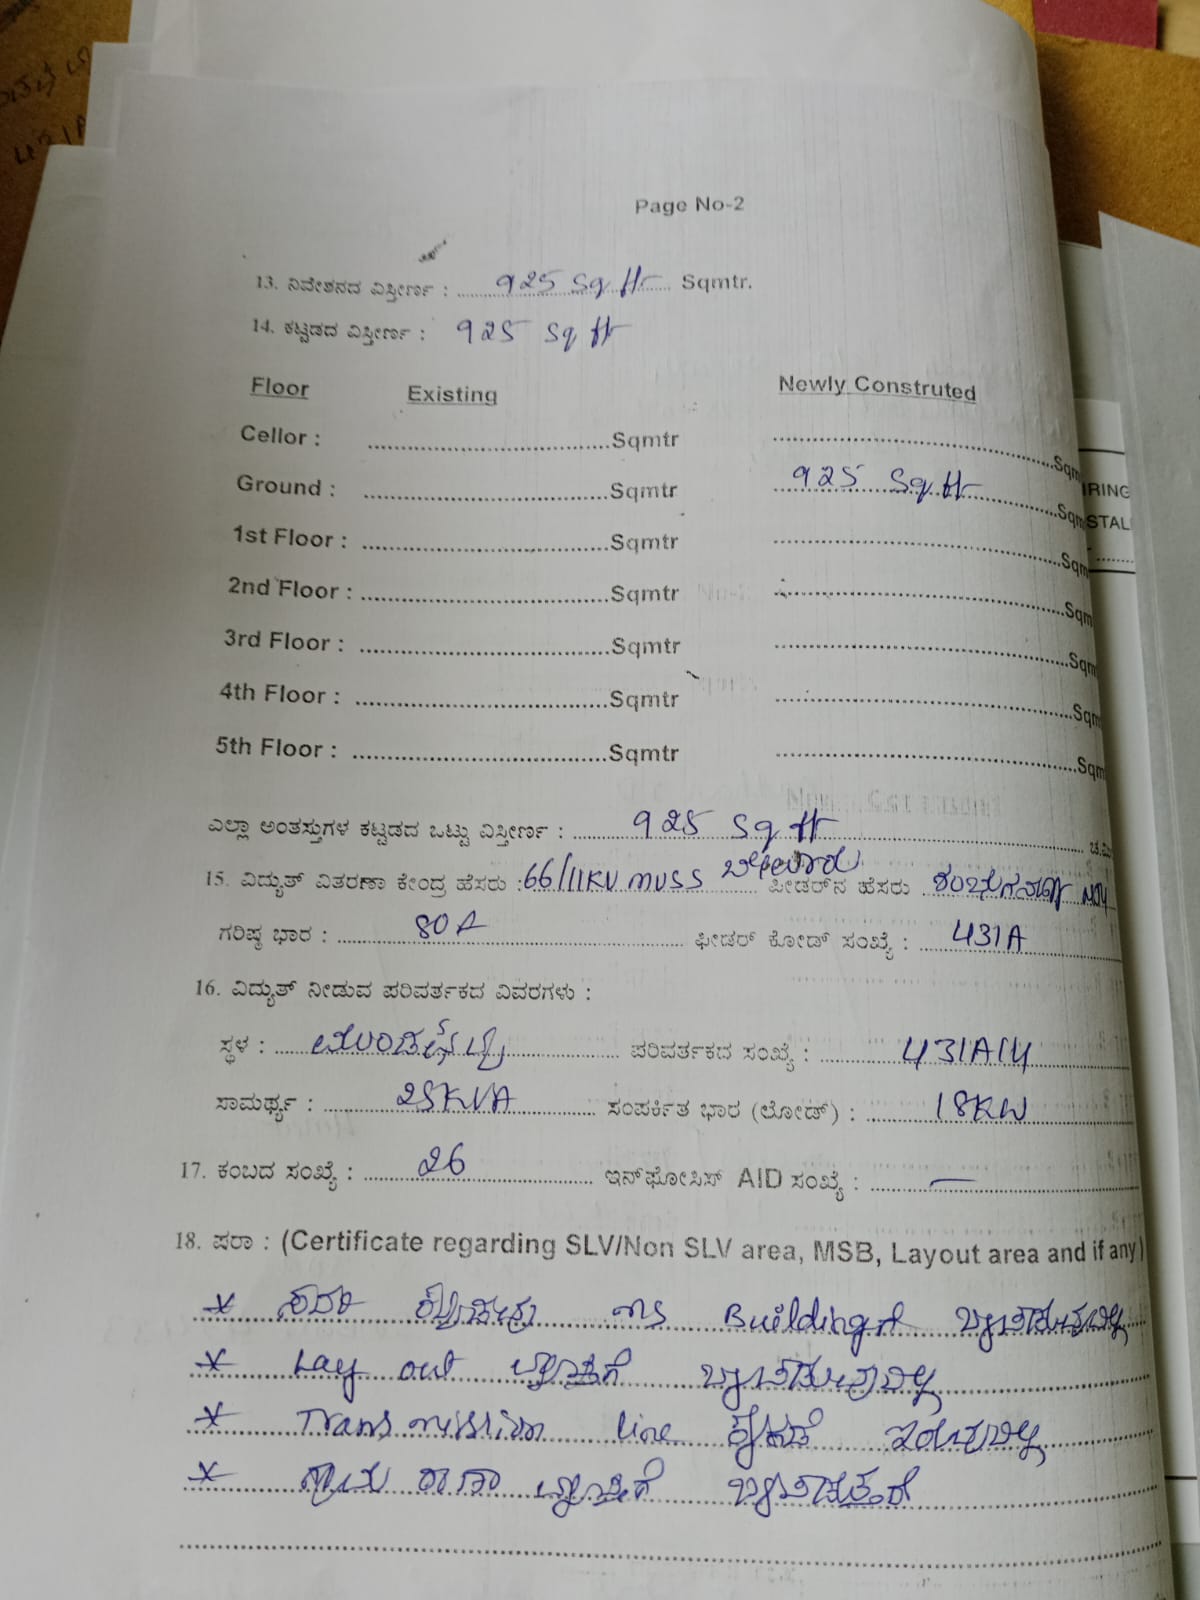 Page No-2
13. ನಿವೇಶನದ ವಿಸ್ತೀರ್ಣ : 925 Sq ft Sqmtr.
14. ಕಟ್ಟಡದ ವಿಸ್ತೀರ್ಣ : 925 Sq ft
Floor Existing Newly Construted
Cellor : Sqmtr Sqm
Ground : Sqmtr 925 Sq ft Sqm
1st Floor : Sqmtr Sqm
2nd Floor : Sqmtr Sqm
3rd Floor : Sqmtr Sqm
4th Floor : Sqmtr Sqm
5th Floor : Sqmtr Sqm
ಎಲ್ಲಾ ಅಂತಸ್ತುಗಳ ಕಟ್ಟಡದ ಒಟ್ಟು ವಿಸ್ತೀರ್ಣ : 925 Sq ft ಚ.ಮಿ
15. ವಿದ್ಯುತ್ ವಿತರಣಾ ಕೇಂದ್ರ ಹೆಸರು : 66/11KV MUSS ಫೀಡರ್‌ನ ಹೆಸರು NJY
ಗರಿಷ್ಠ ಭಾರ : 80A ಫೀಡರ್ ಕೋಡ್ ಸಂಖ್ಯೆ : 431A
16. ವಿದ್ಯುತ್ ನೀಡುವ ಪರಿವರ್ತಕದ ವಿವರಗಳು :
ಸ್ಥಳ : ಪರಿವರ್ತಕದ ಸಂಖ್ಯೆ : 431A14
ಸಾಮರ್ಥ್ಯ : 25KVA ಸಂಪರ್ಕಿತ ಭಾರ (ಲೋಡ್) : 18KW
17. ಕಂಬದ ಸಂಖ್ಯೆ : 26 ಇನ್‌ಫೋಸಿಸ್ AID ಸಂಖ್ಯೆ : —
18. ಷರಾ : (Certificate regarding SLV/Non SLV area, MSB, Layout area and if any)
* ಸದರಿ ಕಟ್ಟಡವು MS Building ಗೆ
* Lay out ವ್ಯಾಪ್ತಿಗೆ
* Transmission line ಕೆಳಗಡೆ ಇರುವುದಿಲ್ಲ
* ಗ್ರಾಮ ಠಾಣಾ ವ್ಯಾಪ್ತಿಗೆ
IRING
STAL
431A